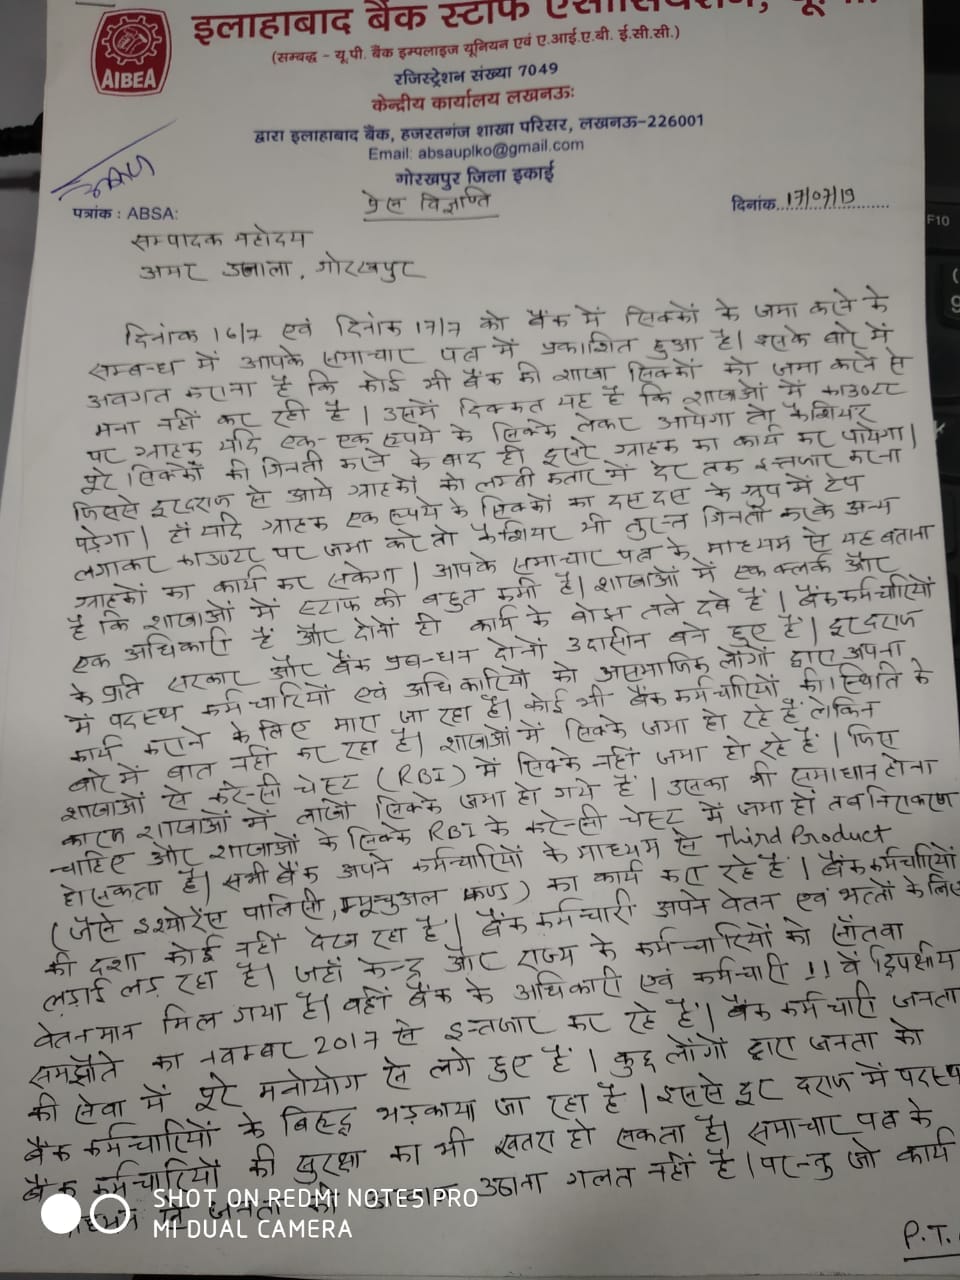 इलाहाबाद बैंक स्टाफ एसोसियेशन, यू.पी.
AIBEA
(सम्बद्ध - यू.पी. बैंक इम्पलाइज यूनियन एवं ए.आई.ए.बी. ई.सी.सी.)
रजिस्ट्रेशन संख्या 7049
केन्द्रीय कार्यालय लखनऊः
द्वारा इलाहाबाद बैंक, हजरतगंज शाखा परिसर, लखनऊ-226001
Email: absauplko@gmail.com
गोरखपुर जिला इकाई
पत्रांक : ABSA:
प्रेस विज्ञप्ति
दिनांक 17/07/19
सम्पादक महोदय
अमर उजाला, गोरखपुर
दिनांक 16/7 एवं दिनांक 17/7 को बैंक में सिक्कों के जमा करने के
सम्बन्ध में आपके समाचार पत्र में प्रकाशित हुआ है। इसके बारे में
अवगत कराना है कि कोई भी बैंक की शाखा सिक्कों को जमा करने से
मना नहीं कर रही है। उसमें दिक्कत यह है कि शाखाओं में काउण्टर
पर ग्राहक यदि एक-एक रूपये के सिक्के लेकर आयेगा तो कैशियर
पूरे सिक्कों की गिनती करने के बाद ही दूसरे ग्राहक का कार्य कर पायेगा।
जिससे दूरदराज से आये ग्राहकों को लम्बी कतार में देर तक इन्तजार करना
पड़ेगा। हाँ यदि ग्राहक एक रूपये के सिक्कों का दस दस के ग्रुप में टेप
लगाकर काउण्टर पर जमा करे तो कैशियर भी तुरन्त गिनती करके अन्य
ग्राहकों का कार्य कर सकेगा। आपके समाचार पत्र के माध्यम से यह बताना
है कि शाखाओं में स्टाफ की बहुत कमी है। शाखाओं में एक क्लर्क और
एक अधिकारी है और दोनों ही कार्य के बोझ तले दबे हैं। बैंक कर्मचारियों
के प्रति सरकार और बैंक प्रबन्धन दोनों उदासीन बने हुए हैं। दूरदराज
में पदस्थ कर्मचारियों एवं अधिकारियों को असमाजिक लोगों द्वारा अपना
कार्य कराने के लिए मारा जा रहा है। कोई भी बैंक कर्मचारियों की स्थिति के
बारे में बात नहीं कर रहा है। शाखाओं में सिक्के जमा हो रहे हैं लेकिन
शाखाओं से करेन्सी चेस्ट (RBI) में सिक्के नहीं जमा हो रहे हैं। जिस
कारण शाखाओं में लाखों सिक्के जमा हो गये हैं। उसका भी समाधान होना
चाहिए और शाखाओं के सिक्के RBI के करेन्सी चेस्ट में जमा हों तब निराकरण
हो सकता है। सभी बैंक अपने कर्मचारियों के माध्यम से Third Product
(जैसे इन्श्योरेंस पालिसी, म्यूच्युअल फण्ड) का कार्य कर रहे हैं। बैंक कर्मचारियों
की दशा कोई नहीं देख रहा है। बैंक कर्मचारी अपने वेतन एवं भत्तों के लिए
लड़ाई लड़ रहा है। जहाँ केन्द्र और राज्य के कर्मचारियों को साँतवा
वेतनमान मिल गया है। वहीं बैंक के अधिकारी एवं कर्मचारी 11 वें द्विपक्षीय
समझौते का नवम्बर 2017 से इन्तजार कर रहे हैं। बैंक कर्मचारी जनता
की सेवा में पूरे मनोयोग से लगे हुए हैं। कुछ लोंगों द्वारा जनता को
बैंक कर्मचारियों के बिरूद्ध भड़काया जा रहा है। इससे दूर दराज में पदस्थ
बैंक कर्मचारियों की सुरक्षा का भी खतरा हो सकता है। समाचार पत्र के
से जनता की उठाना गलत नहीं है। परन्तु जो कार्य
P.T.
SHOT ON REDMI NOTE5 PRO
MI DUAL CAMERA
F10